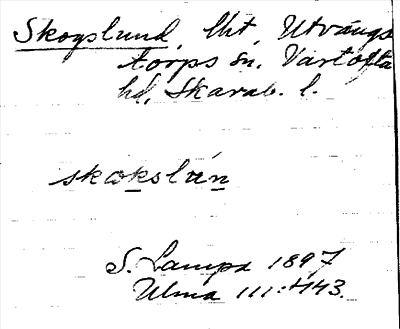 Skogslund, lht, Utvängs
torps sn, Vartofta
hd, Skarab. l.
skokslún
S. Lampa 1897
Ulma 111:443.